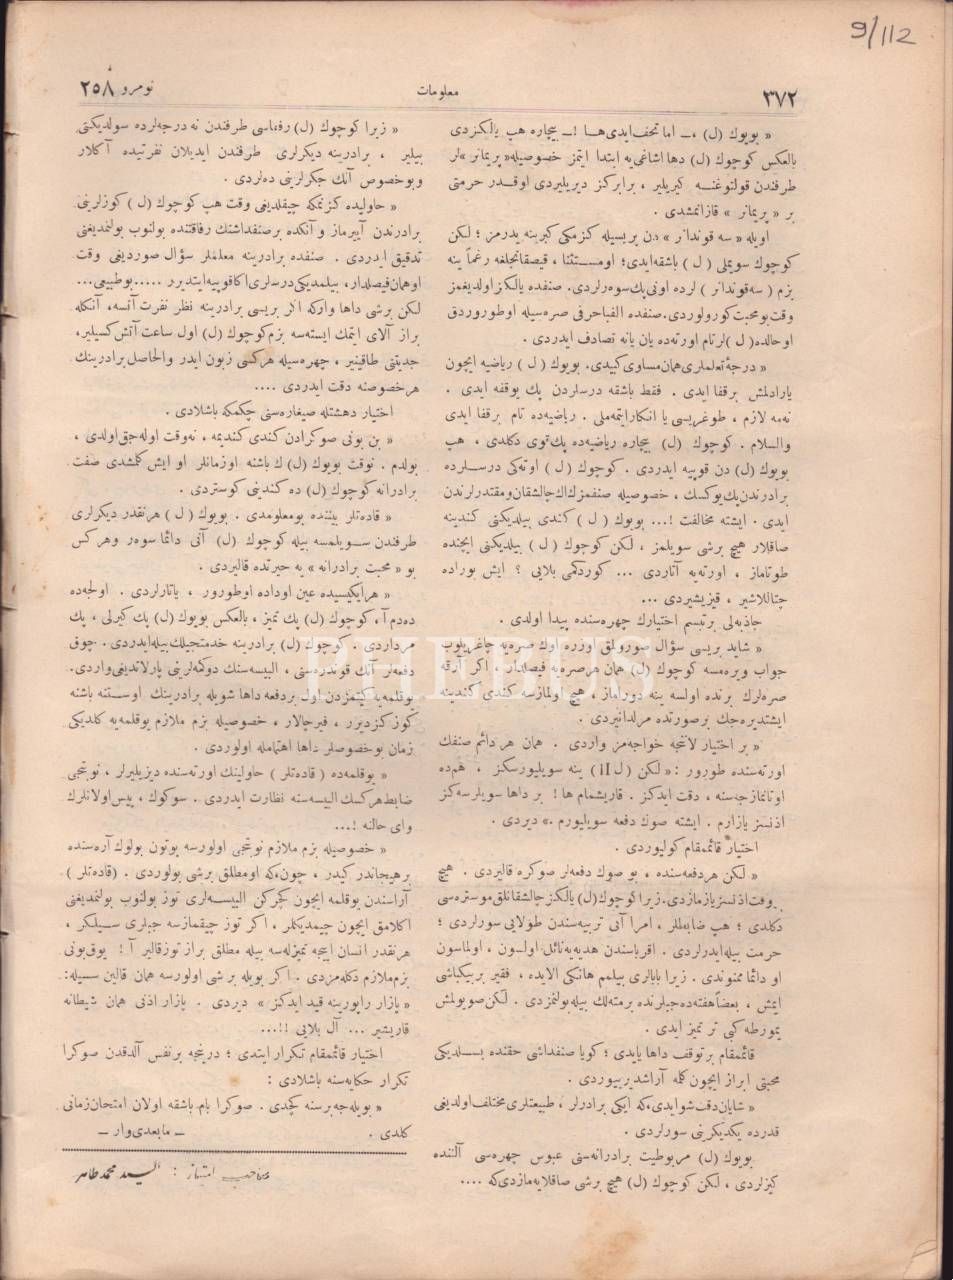 9/112
٣٧٢
معلومات
نومرو ٢٥٨
« بویوك (ل) ،ـ اما تحف ایدی‌ها !ـ بیچاره هپ یالكزدی
بالعكس كوچوك (ل) دها اشاغی‌یه ابتدا ایتمز خصوصیله« پریمانر »لر
طرفندن قولتوغنه كیریلیر ، برابركز دیریلیردی اوقدر حرمتی
بر « پریمانر » قازانمشدی .
اویله « سه قوندانر » دن بریسیله كزمكی كبرینه یدرمز ؛ لكن
كوچوك سویملی ( ل ) باشقه ایدی؛ اومستثنا ، قیصقانجلغه رغماً ینه
بزم ( سه‌قوندانر ) لرده اونی پك سوه‌رلردی. صنفده یالكز اولدیغمز
وقت بو محبت كورولوردی. صنفده الفبا حرفی صره‌سیله اوطوروردق
او حالده( ل )لر تام اورته‌ده یان یانه تصادف ایدردی .
« درجۀ تعلملری همان مساوی كبیدی. بویوك ( ل ) ریاضیه ایچون
یارادلمش برقفا ایدی . فقط باشقه درسلردن پك یوفقه ایدی .
نه‌مه لازم ، طوغریسی یا انكار ایتمه‌ملی . ریاضیه‌ده تام برقفا ایدی
والسلام . كوچوك (ل) بیچاره ریاضیه‌ده پك قوی دكلدی ، هپ
بویوك (ل) دن قوپیه ایدردی . كوچوك ( ل ) اوته‌كی درسلرده
برادرندن پك یوكسك ، خصوصیله صنفمزك الك چالشقان ومقتدرلرندن
ایدی . ایشته مخالفت !... بویوك ( ل ) كندی بیلدیكنی كندینه
صاقلار هیچ برشی سویلمز ، لكن كوچوك ( ل ) بیلدیكنی ایچنده
طوتاماز ، اورته‌یه آتاردی ... كوردكمی بلایی ؟ ایش بوراده
چتاللاشیر ، قیزیشیردی ...
جاذبه‌لی برتبسم اختیارك چهره‌سنده پیدا اولدی .
« شاید بریسی سؤال صورولمق اوزره اوك صره‌یه چاغریلوب
جواب ویره‌مسه كوچوك (ل) همان هر صره‌یه فیصلدار ، اكر آرقه
صره‌لرك برنده اولسه ینه دوراماز ، هیچ اولمازسه كندی كندینه
ایشتدیره‌جك برصورتده مرلدانیردی .
« بر اختیار لانتجه خواجه‌مز واردی . همان هر دائم صنفك
اورته‌سنده طورور :« لكن (ل II) ینه سویلیورسكز ، هم‌ده
اوتانمازجه‌سنه ، دقت ایدكز . قاریشمام ها! بر داها سویلرسه‌كز
اذنسز یازارم . ایشته صوك دفعه سویلیورم .» دیردی .
اختیار قائممقام كولیوردی .
« لكن هردفعه‌سنده ، بو صوك دفعه‌لر صوكره قالیردی . هیچ
بروقت اذنسز یازمازدی. زیرا كوچوك (ل) یالكز چالشقانلق موستره‌سی
دكلدی ؛ هپ ضابطلر ، امرا آنی تربیه‌سندن طولایی سورلردی ؛
حرمت بیله ایدرلردی . اقرباسندن هدیه‌یه نائل اولسون ، اولماسون
او دائما ممنوندی . زیرا بابالری بیلمم هانكی الایده ، فقیر بر بیكباشی
ایمش ، بعضاً هفته‌ده جیلرنده برمتلك بیله بولنمزدی . لكن صویولمش
یمورطه كبی تر تمیز ایدی .
قائممقام بر توقف داها یاپدی ؛ كویا صنفداشی حقنده بسلدیكی
محبتی ابراز ایچون كلمه آراشدیریوردی .
« شایان دقت شو ایدی‌كه ایكی برادرلر ، طبیعتلری مختلف اولدیغی
قدرده یكدیكرینی سورلردی .
بویوك (ل) مربوطیت برادرانه‌سنی عبوس چهره‌سی آلتنده
كیزلردی ، لكن كوچوك (ل) هیچ برشی صاقلایه‌مازدی‌كه ....
« زیرا كوچوك (ل) رفقاسی طرفندن نه درجه‌لرده سولدیكنی
بیلیر ، برادرینه دیكرلری طرفندن ایدیلان نفرتیده آكلار
وبوخصوص آنك جكرلرینی ده‌لردی .
« حاولیده كزنمكه چیقلدیغی وقت هپ كوچوك (ل) كوزلرینی
برادرندن آییرماز و آنكده برصنفداشنك رفاقتنده بولنوب بولنمدیغنی
تدقیق ایدردی . صنفده برادرینه معلملر سؤال صوردیغی وقت
اوهمان فیصلدار، بیلمدیكی درسلری اكا قوپیه ایتدیرر .....بوطبیعی...
لكن برشی داها واركه اكر بریسی برادرینه نظر نفرت آتسه، آنكله
براز آلای ایتمك ایسته‌سه بزم كوچوك (ل) اول ساعت آتش كسیلیر،
جدیتنی طاقینیر ، چهره‌سیله هركسی زبون ایدر والحاصل برادرینك
هرخصوصنه دقت ایدردی ....
اختیار دهشتله صیغاره‌سنی چكمكه باشلادی .
« بن بونی صوكرادن كندی كندیمه ، نه‌وقت اوله‌جق اولدی ،
بولدم . نوقت بویوك (ل)ك باشنه اوزمانلر او ایش كلمشدی صفت
برادرانه كوچوك (ل) ده كندینی كوستردی .
« قاده‌تلر بیننده بومعلومدی . بویوك ( ل ) هرنقدر دیكرلری
طرفندن سویلمسه بیله كوچوك (ل) آنی دائما سوه‌ر وهر كس
بو « محبت برادرانه » یه حیرتده قالیردی .
« هرایكیسیده عین اوداده اوطورور ، یاتارلردی . اولجه‌ده
ده‌دم آ، كوچوك (ل) پك تمیز ، بالعكس بویوك (ل) پك كیرلی ، پك
مرداردی . كوچوك (ل) برادرینه خدمتجیلك بیله ایدردی . چوق
دفعه‌لر آنك قوندره‌سنی ، البیسه‌سنك دوكمه‌لرینی پارلاتدیغی واردی.
یوقلمه‌یه كیتمزدن اول بردفعه داها شویله برادرینك اوستنه باشنه
كوز كزدیرر ، فیرچالار ، خصوصیله بزم ملازم یوقلمه‌یه كلدیكی
زمان بوخصوصلر داها اهتمامله اولوردی .
« یوقلمه‌ده ( قاده‌تلر ) حاولینك اورته‌سنده دیزیلیرلر ، نوبتجی
ضابط هركسك البیسه‌سنه نظارت ایدردی . سوكوك ، پیس اولانلرك
وای حالنه !...
« خصوصیله بزم ملازم نوبتجی اولورسه بوتون بولوك آره‌سنده
برهیجاندر كیدر ، چونكه اومطلق برشی بولوردی . (قاده‌تلر )
آراسندن یوقلمه ایچون كچركن البیسه‌لری توز بولنوب بولنمدیغنی
آكلامق ایچون چیمدیكلر ، اكر توز چیقمازسه جبلری سیلكر ،
هرنقدر انسان ایجه تمیزله‌سه بیله مطلق براز توز قالیر آ! یوق بونی
بزم ملازم دكله‌مزدی . اكر بویله برشی اولورسه همان قالین سسیله:
« پازار راپورینه قید ایدكز » دیردی . پازار اذنی همان شیطانه
قاریشیر ... آل بلایی !!...
اختیار قائممقام تكرار ایتدی ؛ درینجه برنفس آلدقدن صوكرا
تكرار حكایه‌سنه باشلادی :
« بویله‌جه برسنه كچدی . صوكرا بام باشقه اولان امتحان زمانی
كلدی .
ـ مابعدی وار ـ
صاحب امتیاز : السید محمد طاهر
PHEBUS